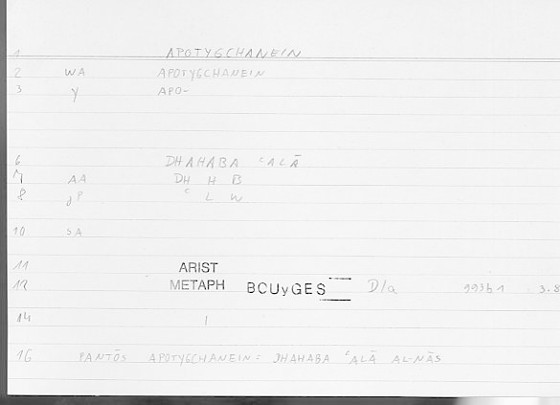 1 APOTYGCHANEIN
2 WA APOTYGCHANEIN
3 y APO-
6 DHAHABA ʿALĀ
7 AA DH H B
8 JP ʿ L W
10 SA
11 ARIST
12 METAPH BCUyGES D/a 993b1 3.8
14 1
16 PANTŌS APOTYGCHANEIN: DHAHABA ʿALĀ AL-NĀS